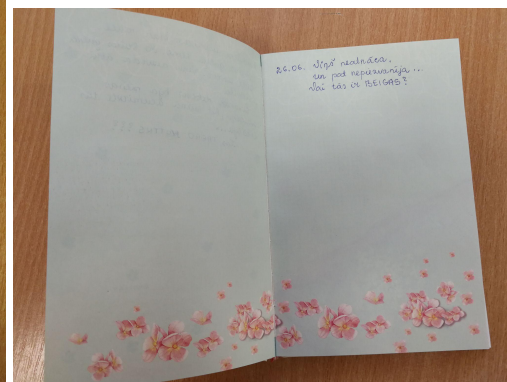 26.06. Viņš neatnāca,
un pat nepiezvanīja...
Vai tās ir BEIGAS?